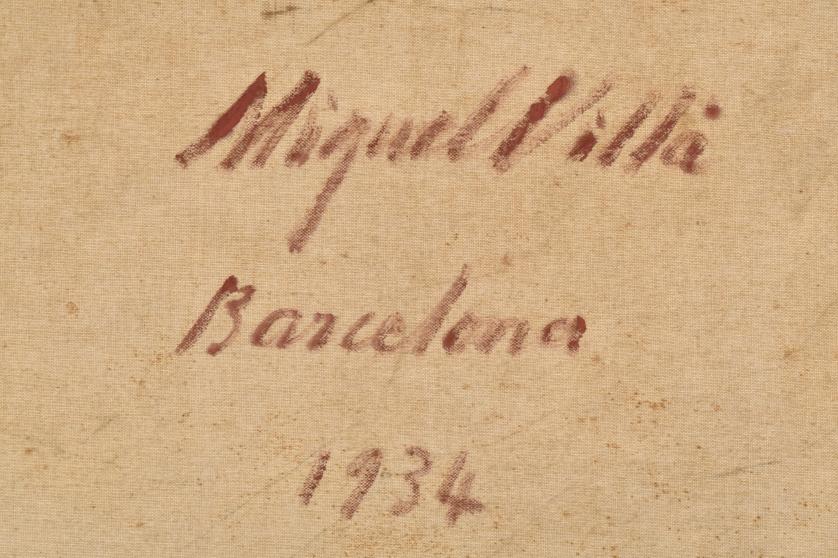 Miquel Villà
Barcelona
1934